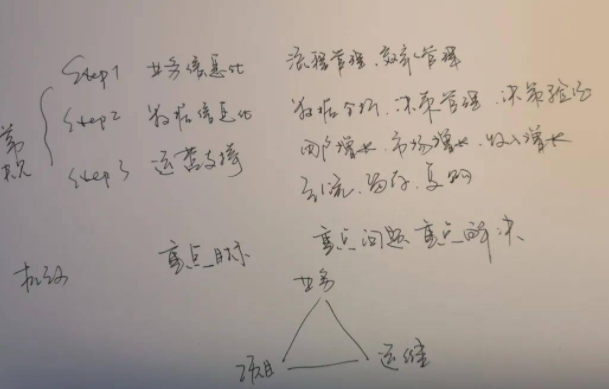 Step1 业务信息化 流程管理、效率管理
Step2 数据信息化 数据分析、决策管理、决策验证
常规
Step3 运营支撑 用户增长、市场增长、收入增长
引流、留存、复购
机动 重点目标 重点问题重点解决
业务
项目 运维